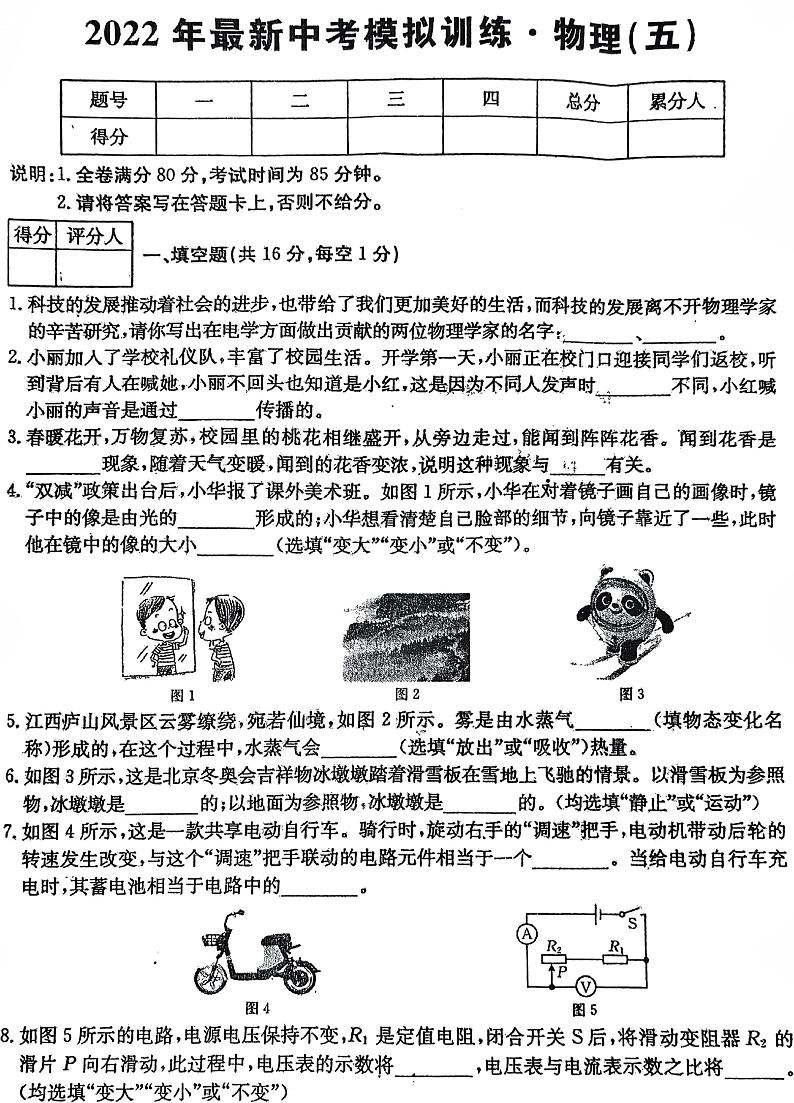 2022年最新中考模拟训练·物理(五)
题号 一 二 三 四 总分 累分人
得分
说明:1.全卷满分80分,考试时间为85分钟。
2.请将答案写在答题卡上,否则不给分。
得分 评分人
一、填空题(共16分,每空1分)
1.科技的发展推动着社会的进步,也带给了我们更加美好的生活,而科技的发展离不开物理学家
的辛苦研究,请你写出在电学方面做出贡献的两位物理学家的名字:________、________。
2.小丽加入了学校礼仪队,丰富了校园生活。开学第一天,小丽正在校门口迎接同学们返校,听
到背后有人在喊她,小丽不回头也知道是小红,这是因为不同人发声时________不同,小红喊
小丽的声音是通过________传播的。
3.春暖花开,万物复苏,校园里的桃花相继盛开,从旁边走过,能闻到阵阵花香。闻到花香是
________现象,随着天气变暖,闻到的花香变浓,说明这种现象与________有关。
4.“双减”政策出台后,小华报了课外美术班。如图1所示,小华在对着镜子画自己的画像时,镜
子中的像是由光的________形成的;小华想看清楚自己脸部的细节,向镜子靠近了一些,此时
他在镜中的像的大小________(选填“变大”“变小”或“不变”)。
图1 图2 图3
5.江西庐山风景区云雾缭绕,宛若仙境,如图2所示。雾是由水蒸气________(填物态变化名
称)形成的,在这个过程中,水蒸气会________(选填“放出”或“吸收”)热量。
6.如图3所示,这是北京冬奥会吉祥物冰墩墩踏着滑雪板在雪地上飞驰的情景。以滑雪板为参照
物,冰墩墩是________的;以地面为参照物,冰墩墩是________的。(均选填“静止”或“运动”)
7.如图4所示,这是一款共享电动自行车。骑行时,旋动右手的“调速”把手,电动机带动后轮的
转速发生改变,与这个“调速”把手联动的电路元件相当于一个________。当给电动自行车充
电时,其蓄电池相当于电路中的________。
S
A
R₂ R₁
P
V
图4 图5
8.如图5所示的电路,电源电压保持不变,R₁是定值电阻,闭合开关S后,将滑动变阻器R₂的
滑片P向右滑动,此过程中,电压表的示数将________,电压表与电流表示数之比将________。
(均选填“变大”“变小”或“不变”)